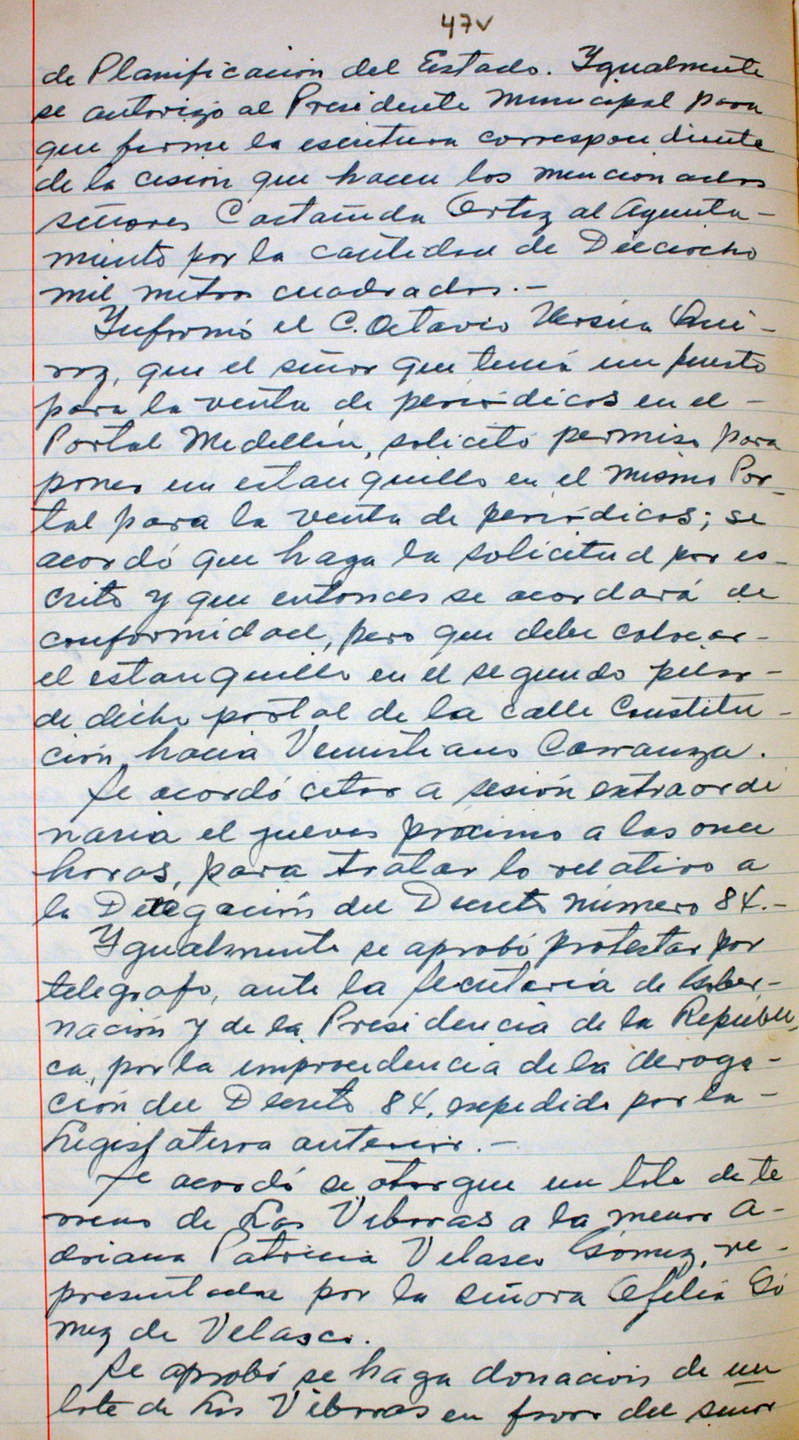 47v
de Planificacion del Estado. Ygualmente
se autorizó al Presidente Municipal para
que firme la escritura correspondiente
de la cesión que hacen los mencionados
señores Castañeda Ortiz al Ayunta-
miento por la cantidad de Dieciocho
mil metros cuadrados.-
Ynformó el C. Octavio Versica Qui-
roz, que el señor que tenía un puesto
para la venta de periódicos en el-
Portal Medellín, solicitó permiso para
poner un estanquillo en el mismo Por-
tal para la venta de periódicos; se
acordó que haga la solicitud por es-
crito y que entonces se acordará de
conformidad, pero que debe colocar-
el estanquillo en el segundo pilar-
de dicho portal de la calle Constitu-
ción, hacia Venustiano Carranza.
Se acordó citar a sesión extraordi
naria el jueves próximo a las once
horas, para tratar lo relativo a
la Derogación del Decreto número 84.-
Ygualmente se aprobó protestar por
telegrafo, ante la Secretaría de Gober-
nación y de la Presidencia de la Repúbli,
ca, por la improcedencia de la deroga-
ción del Decreto 84, expedido por la-
Legislatura anterior.-
Se acordó se otorgue un lote de te
rreno de Las Víboras a la menor A-
driana Patricia Velasco Gómez, re-
presentada por la señora Ofelia Gó
mez de Velasco.
Se aprobó se haga donación de un
lote de Las Víboras en favor del señor